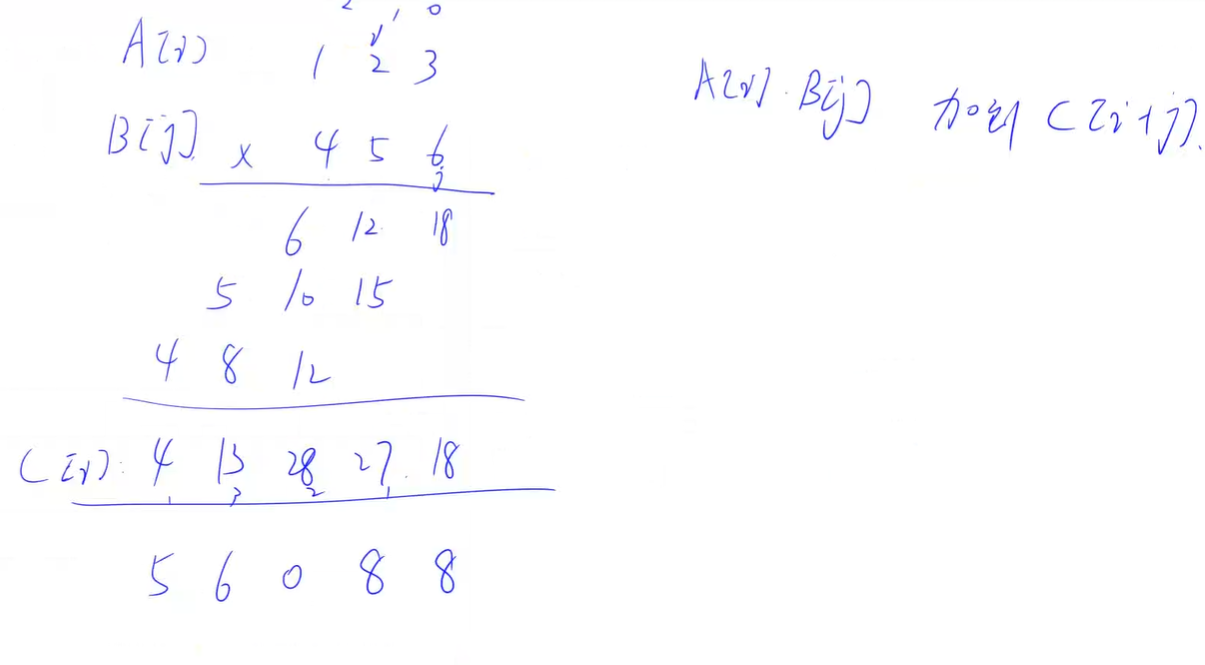 2 1 0
A[i] 1 2 3
i
B[j] × 4 5 6
j
6 12 18
5 10 15
4 8 12
C[i]: 4 13 28 27 18
1 3 2 1
5 6 0 8 8
A[i] · B[j] 加到 C[i+j].